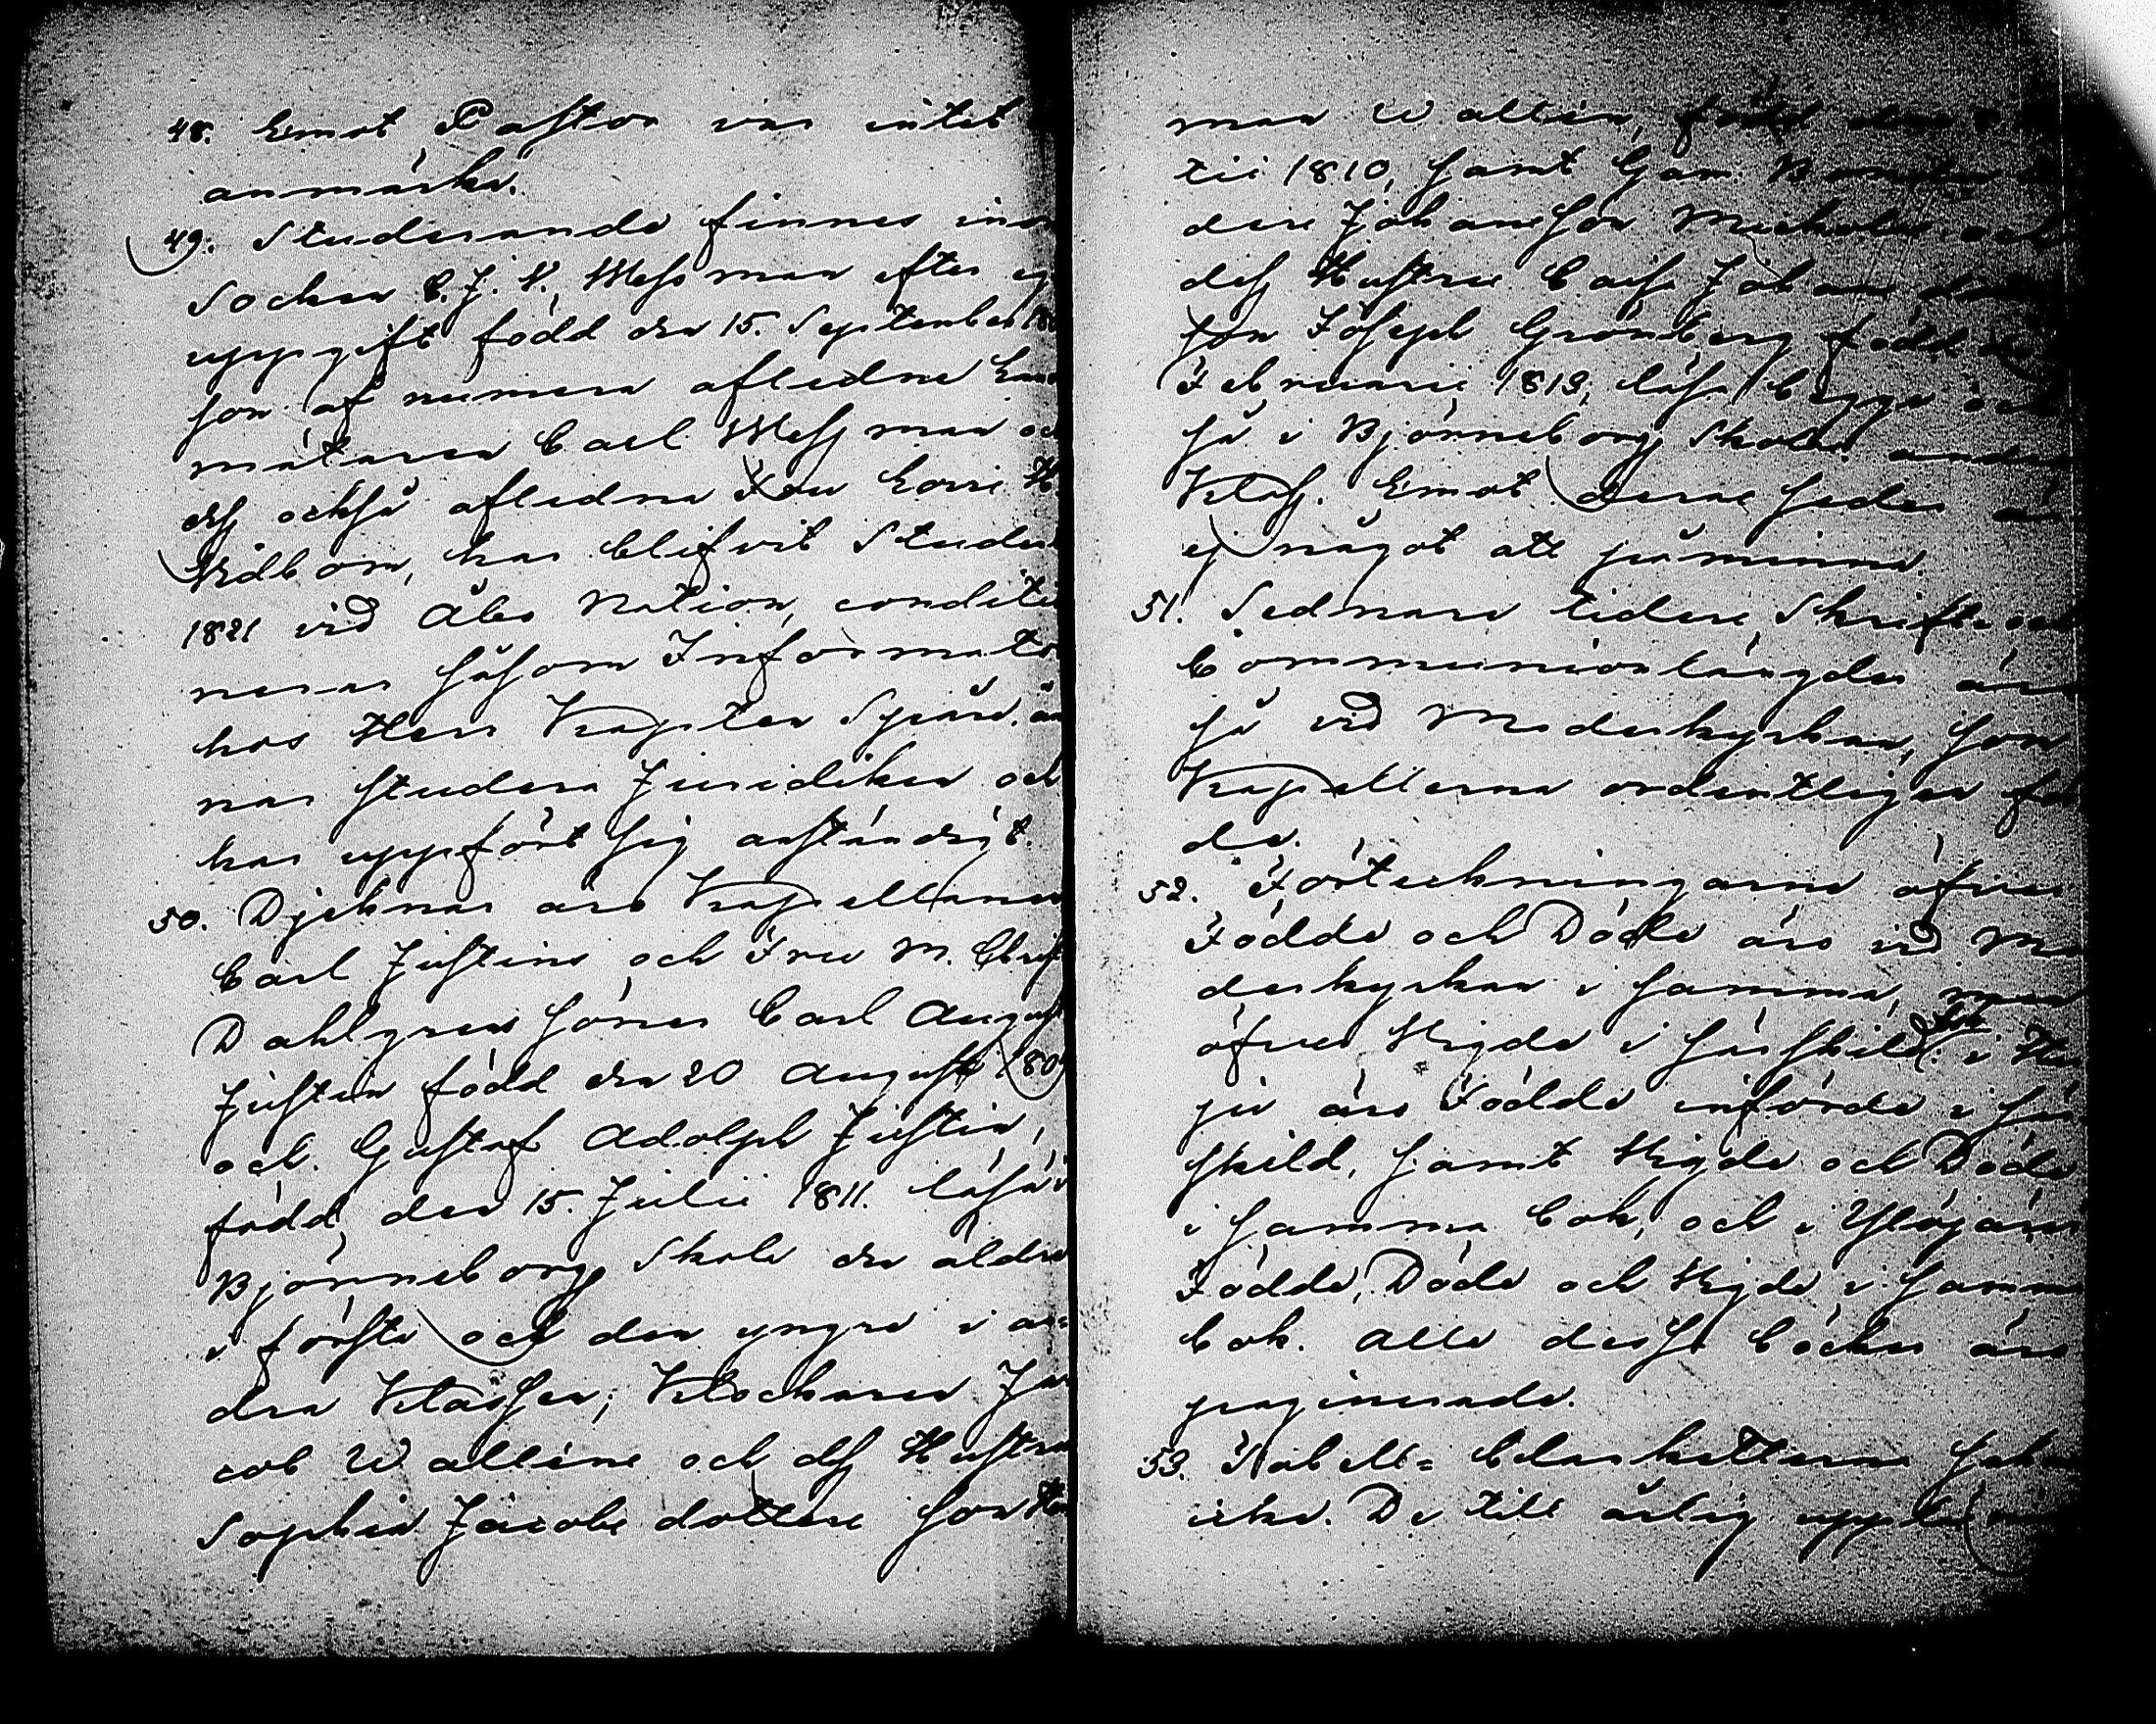 48. Emot Pastor var intet
anmärka.
49. Studerande finnes inom
Socken C. J. N. Wessman efter eg
uppgift född den 15. September 180
son af numera afledne Land
mätaren Carl Wessman och
dess också afledna Fru Lovi H.
Widbom, har blifvit Student
1821 vid Åbo Nation, conditio
nerar såsom Informator
hos Herr Kapten Spåre, äm
nar studera Juridiken och
har uppfört sig anständigt.
50. Djeknar äro Kapellanen
Carl Justins och Fru M. Christ
Dahlgrens söner Carl August
Justin född den 20 August 180
och Gustaf Adolph Justin,
född den 15. Julii 1811. läsa i
Björneborgs Skola den äldre
i första och den yngre i an=
dra Klassen; Klockaren Ja
cob Walléns och dess Hustru
Sophia Jacobs dotters son Her
man Wallén, född den
tii 1810, samt Gam. Bonden
ders Johansson Mickola och
dess Hustru Caisa Johans dotters
son Joseph Grönberg född d
Februarii 1813, läsa begge och
så i Björneborgs Skola andra
Klass. Emot deras seder är
ej något att påminna.
51. Sednare tiders Skrift= och
Communion längder äro
så vid Moderkyrkan, som
Kapellerna ordentligen för
da.
52. Förteckningarne öfver
Födde och Döde äro vid Mo
derkyrkan i samma, men
öfver Vigde i särskild bok i
ju äro Födde införde i sär
skild, samt Vigde och Döde
i samma bok, och i Ylöjärvi
Födde, Döde och Vigde i samma
bok. Alla dessa böcker äro
paginerade.
53. Tabell= blanketterne sak
icke. De till årlig